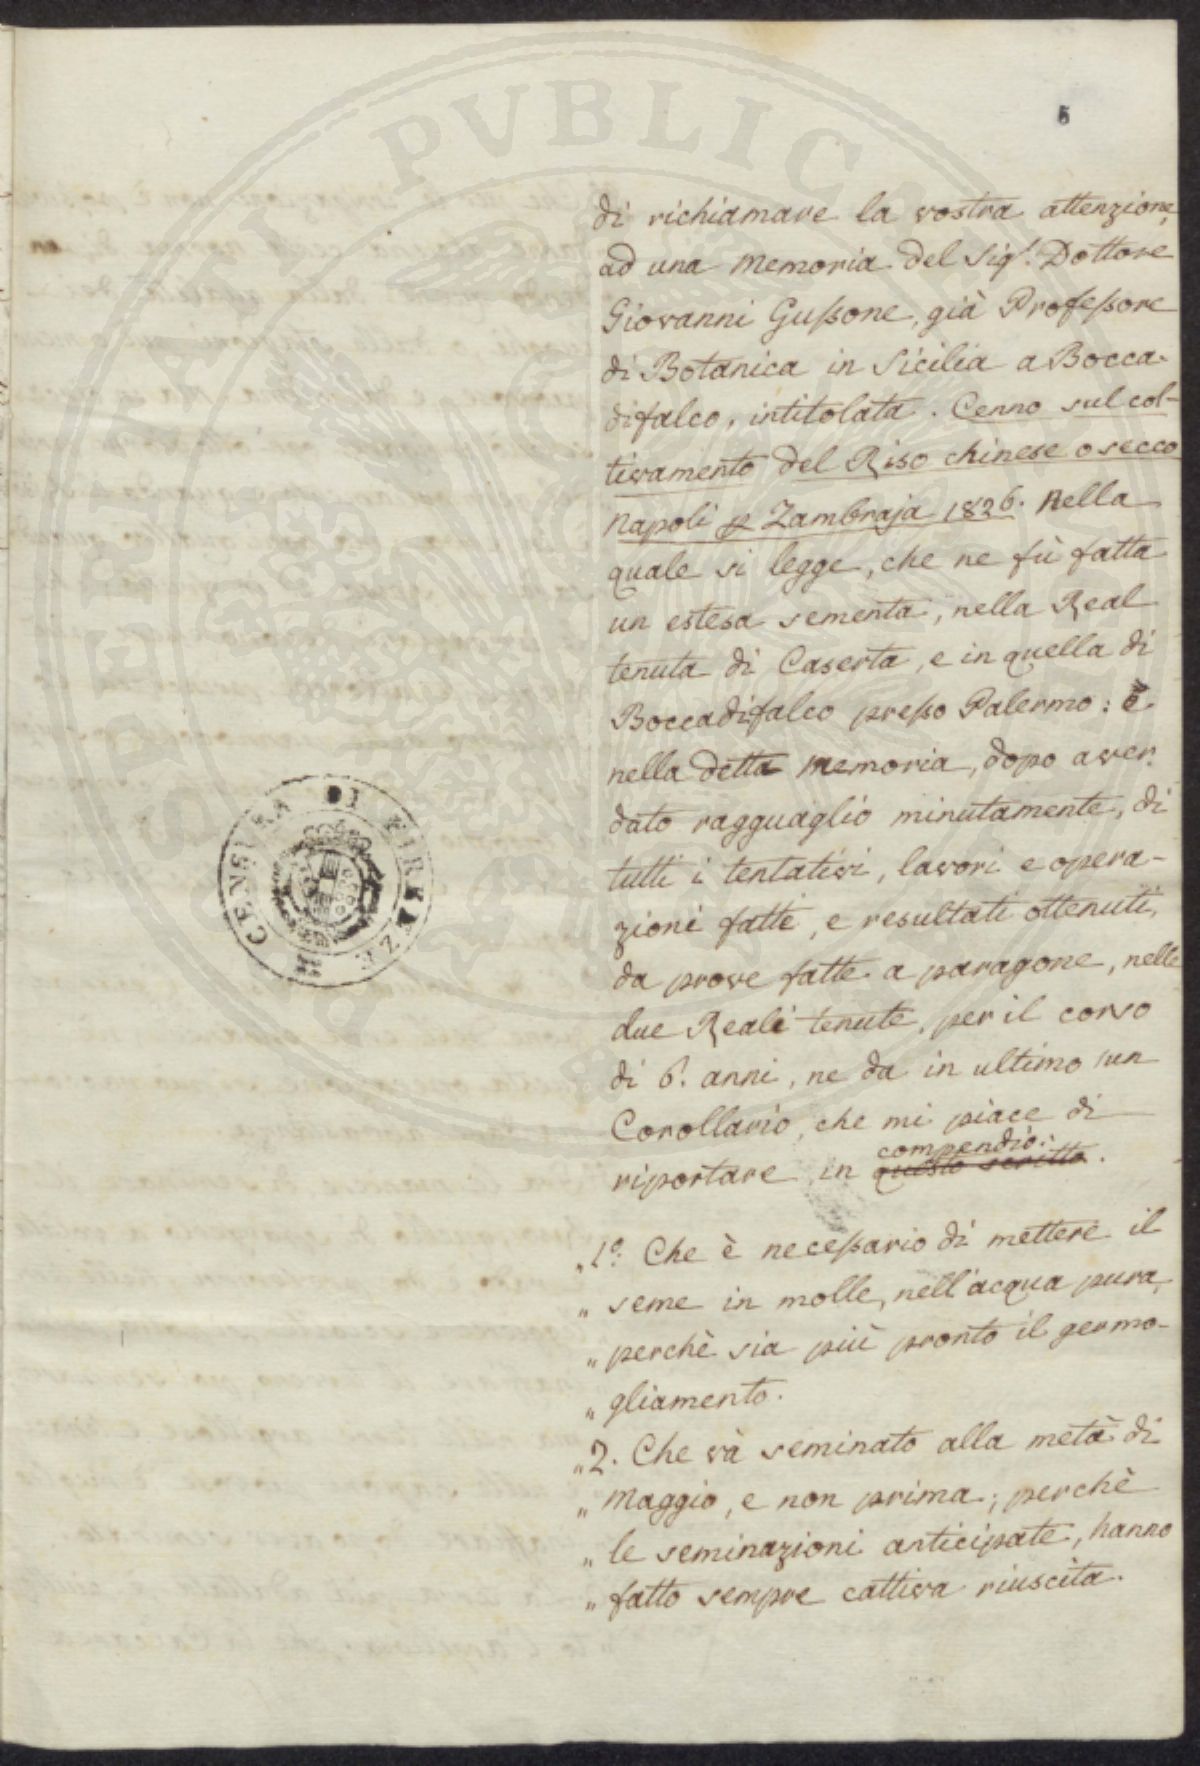 5
di richiamare la vostra attenzione,
ad una Memoria del Sigr. Dottore
Giovanni Gussone, già Professore
di Botanica in Sicilia a Bocca-
difalco, intitolata. Cenno sul col-
tivamento del Riso chinese o secco
Napoli p Zambraja 1826. Nella
quale si legge, che ne fù fatta
un estesa sementa, nella Real
tenuta di Caserta, e in quella di
Boccadifalco presso Palermo: e
nella detta Memoria, dopo aver
dato ragguaglio minutamente, di
tutti i tentativi, lavori e opera-
zioni fatte, e resultati ottenuti,
da prove fatte a paragone, nelle
due Reali tenute, per il corso
di 6. anni, ne da in ultimo un
Corollario, che mi piace di
compendio:
riportare in questo scritto.
„1o. Che è necessario di mettere il
„ seme in molle, nell'acqua pura,
„ perchè sia più pronto il germo-
„ gliamento.
„2. Che và seminato alla metà di
„ Maggio, e non prima; perchè
„ le seminazioni anticipate, hanno
„ fatto sempre cattiva riuscita.
R CENSURA DI FIRENZE
PUBLICAE